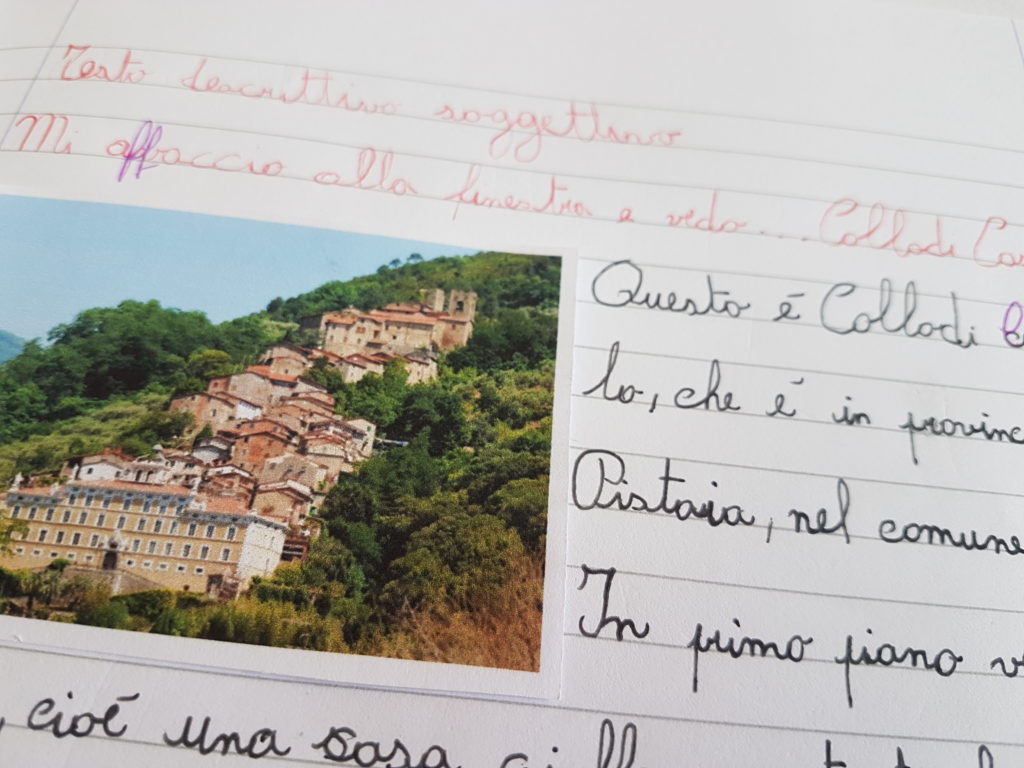 Testo descrittivo soggettivo
Mi affaccio alla finestra e vedo... Collodi Cas
Questo è Collodi
lo, che è in provinc
Pistoia, nel comune
In primo piano v
, cioè una casa